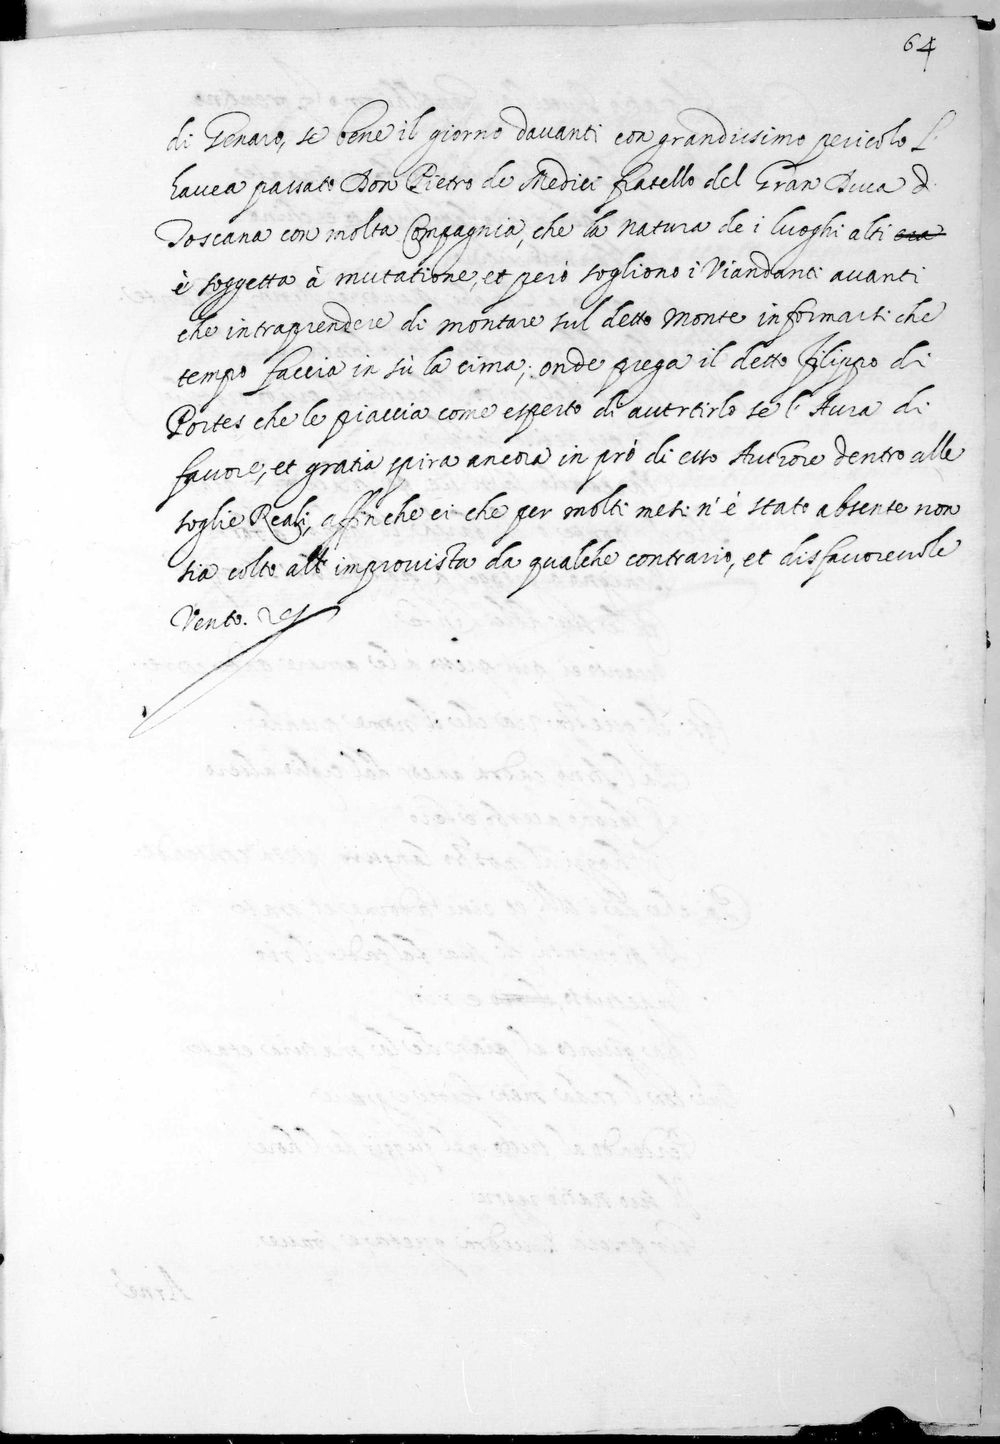 64
di Genaro, se bene il giorno dauanti con grandissimo pericolo l'
hauea passato Don Pietro de Medici fratello del Gran Duca di
Toscana con molta Compagnia, che la natura de i luoghi alti
è soggetta à mutatione, et però sogliono i Viandanti auanti
che intraprendere di montare sul detto Monte informarsi che
tempo faccia in sù la cima; onde prega il detto Filippo di
Portes che le piaccia come esperto di auertirlo se l'Aura di
fauore, et gratia spira ancora in prò di esso Authore dentro alle
soglie Reali, affin che ei che per molti mesi n' è stato absente non
sia colto all' improuista da qualche contrario, et disfauoreuole
Vento.